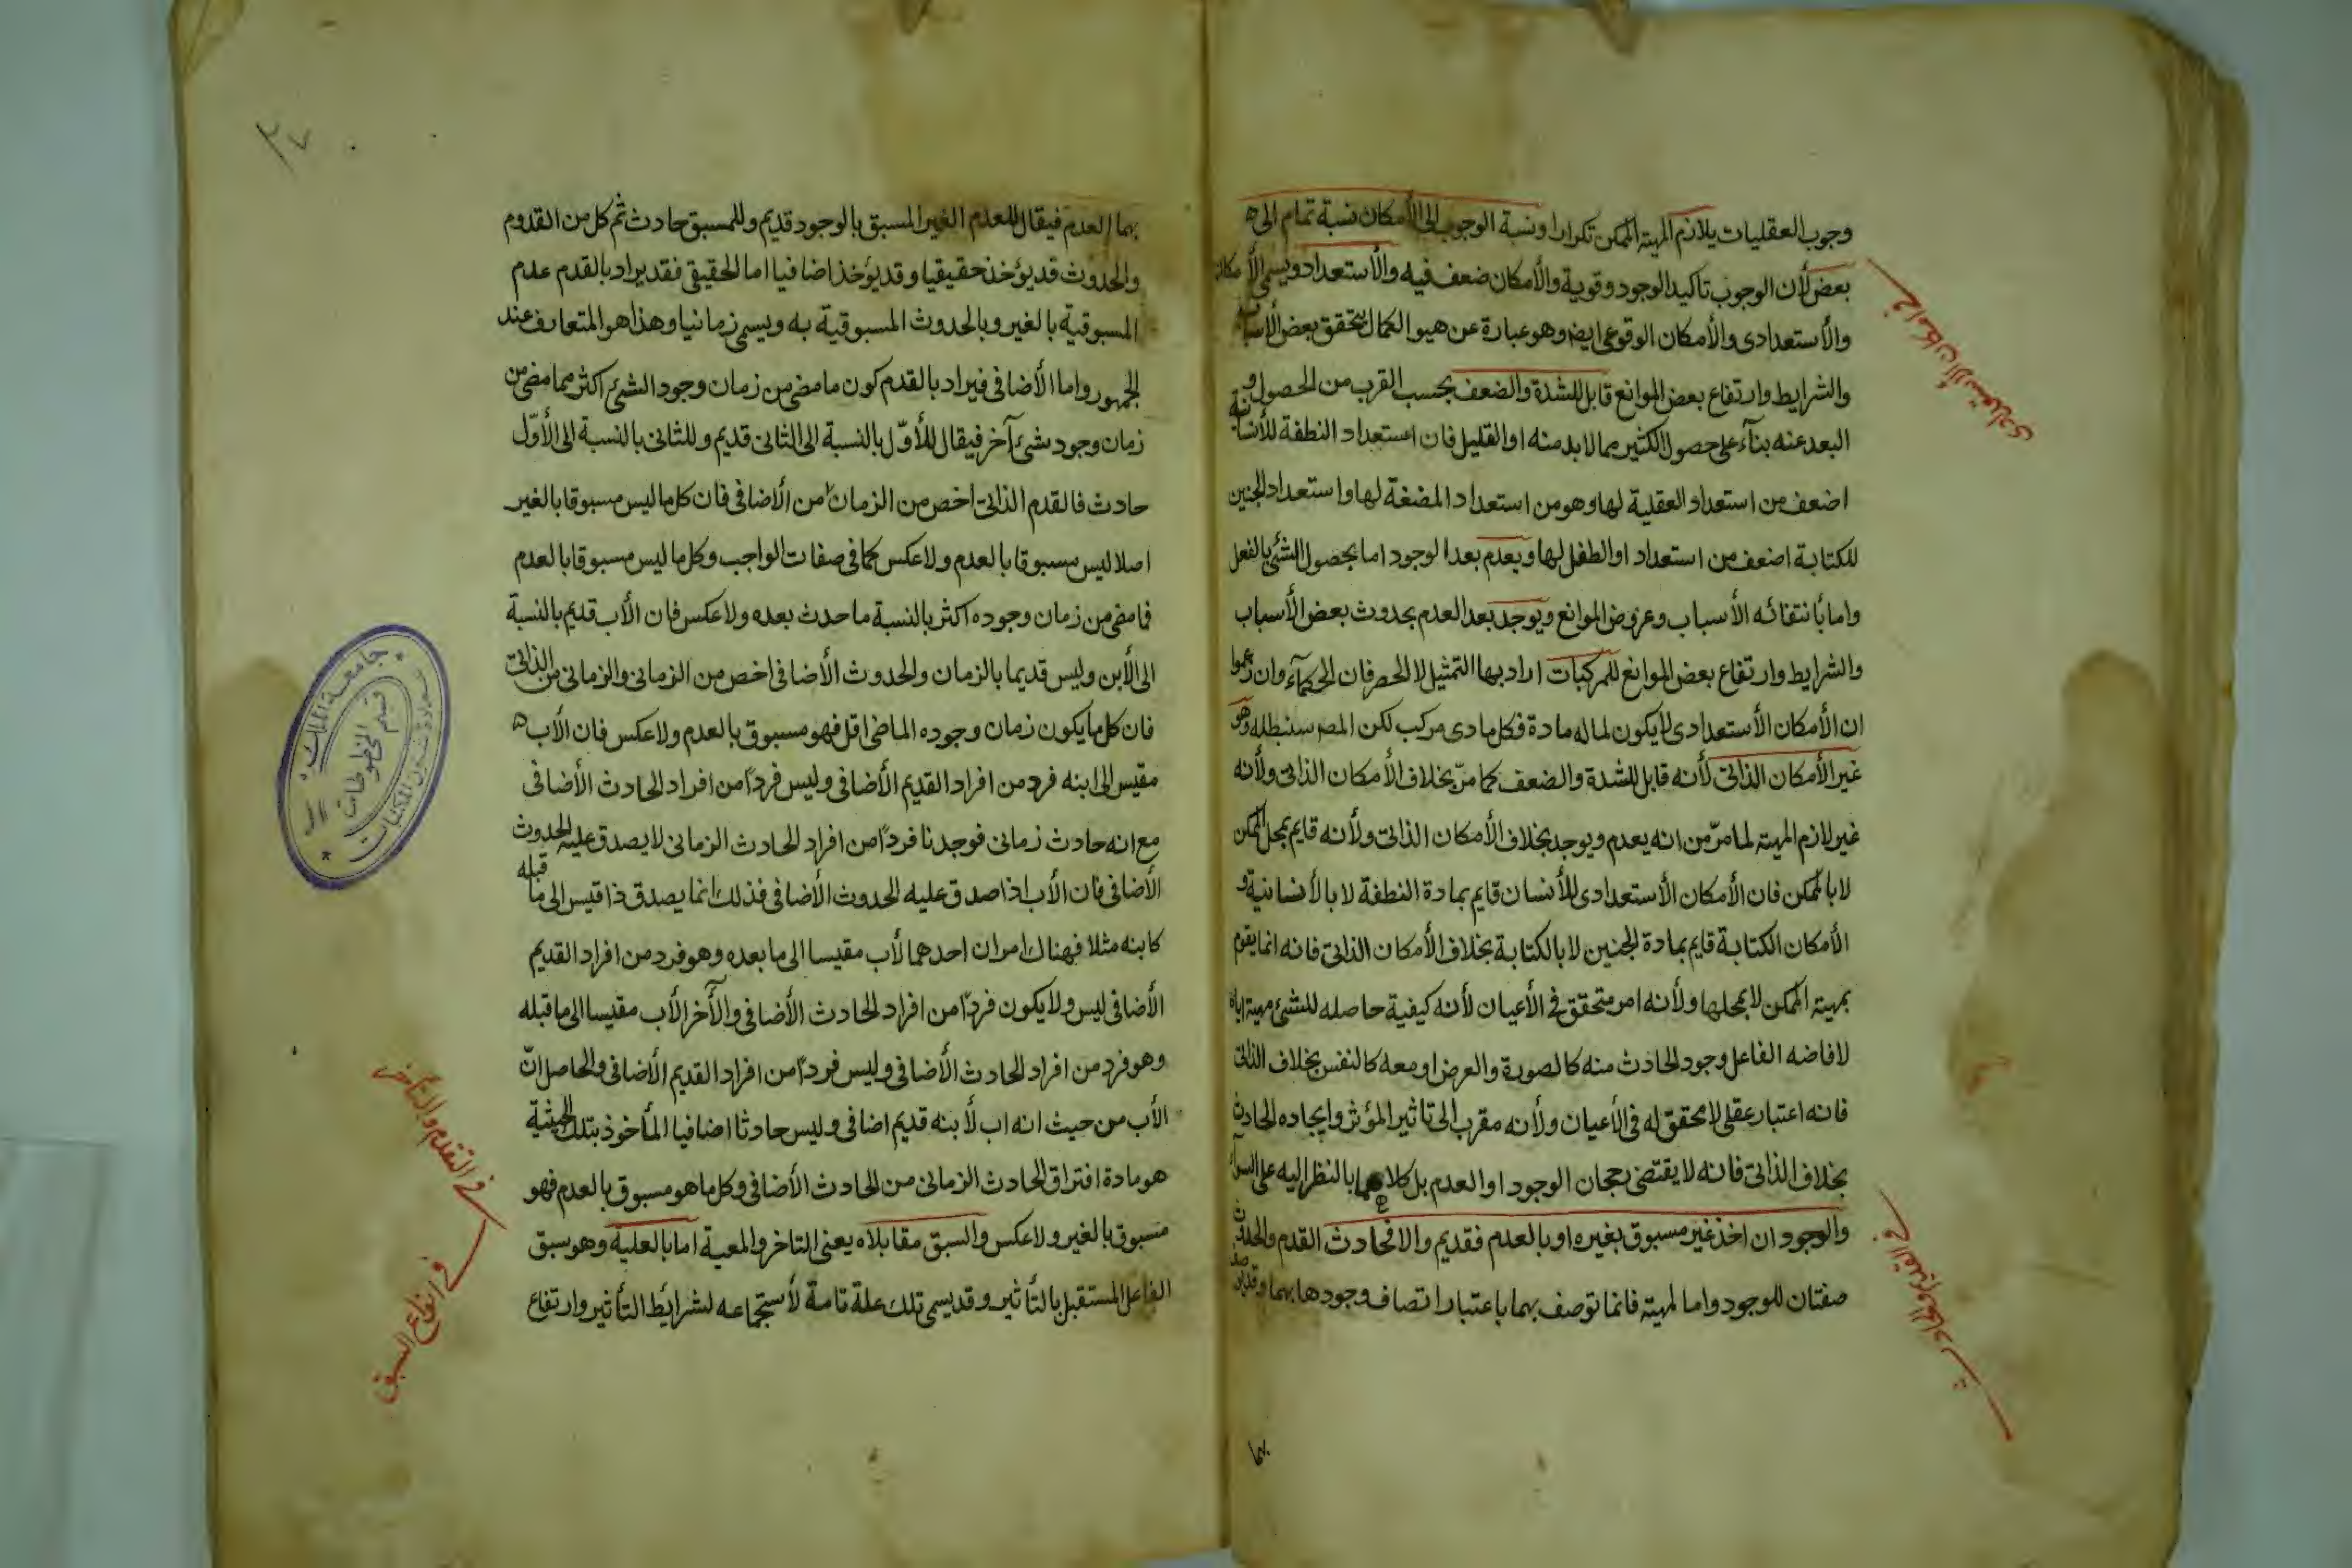 وجوب العقليات يلازم المهية الممكن تكرارا ونسبة الوجوب الى الأمكان نسبة تمام الى ه
بعض لأن الوجوب تاكيد الوجود وقوية والأمكان ضعف فيه والأستعداد ويسمى الأمكان
والأستعدادى والأمكان الوقوعى ايضا وهو عبارة عن هيوا الكمال يتحقق بعض الأسباب
والشرايط وارتفاع بعض الموانع قابل للشدة والضعف بحسب القرب من الحصول و
البعد عنه بنآء على حصول الكثير مما لا بد منه او القليل فان استعداد النطفة للأنسانية
اضعف من استعداد العقلية لها وهو من استعداد المضغة لها واستعداد الجنين
للكتابة اضعف من استعداد او الطفل لها ويعدم بعد الوجود اما بحصول الشئ بالفعل
واما بأنتفائه الأسباب وعروض الموانع ويوجد بعد العدم بحدوث بعض الأسباب
والشرايط وارتفاع بعض الموانع للمركبات اراد بها التمثيل لا الحصر فان الحكمآء وان زعموا
ان الأمكان الأستعدادى لا يكون لما له مادة فكل مادى مركب لكن المص سنبطله وهو
غير الأمكان الذاتى لأنه قابل للشدة والضعف كما مرّ بخلاف الأمكان الذاتى ولأنه
غير لازم المهية لما مرّ من انه يعدم ويوجد بخلاف الأمكان الذاتى ولأنه قايم بمحل الممكن
لا بالممكن فان الأمكان الأستعدادى للأنسان قايم بمادة النطفة لا بالأنسانية و
الأمكان الكتابة قايم بمادة الجنين لا بالكتابة بخلاف الأمكان الذاتى فانه انما يقوم
بمهية الممكن لا بمحلها ولأنه امر متحقق فى الأعيان لأنه كيفية حاصله للشئ مهية اياه
لافاضه الفاعل وجود الحادث منه كالصورة والعرض او معه كالنفس بخلاف الذاتى
فانه اعتبار عقلى لا محقق له فى الأعيان ولأنه مقرب الى تاثير المؤثر وايجاده الحادث
بخلاف الذاتى فانه لا يقتضى رجحان الوجود او العدم بل كلاهما بالنظر اليه على السوآء
والوجود ان اخذ غير مسبوق بغيره او بالعدم فقديم والا فحادث القدم والحدوث
صفتان للوجود واما المهية فانما توصف بهما باعتبار اتصاف وجودها بهما وقد يوصف
بهما
فى امكان الأستعدادى
فى القديم والحادث
٣٧
بهما العدم فيقال للعدم الغير المسبق بالوجود قديم وللمسبق حادث ثم كل من القدوم
والحدوث قد يؤخذ حقيقيا وقد يؤخذ اضافيا اما الحقيقى فقد يراد بالقدم عدم
المسبوقية بالغير وبالحدوث المسبوقية به ويسمى زمانيا وهذا هو المتعارف عند
الجمهور واما الأضافى فيراد بالقدم كون ما مضى من زمان وجود الشئ اكثر مما مضى من
زمان وجود شئ آخر فيقال للأوّل بالنسبة الى الثانى قديم وللثانى بالنسبة الى الأوّل
حادث فالقدم الذاتى اخص من الزمان من الأضافى فان كل ما ليس مسبوقا بالغير
اصلا ليس مسبوقا بالعدم ولا عكس كما فى صفات الواجب وكل ما ليس مسبوقا بالعدم
فما مضى من زمان وجوده اكثر بالنسبة ما حدث بعده ولا عكس فان الأب قديم بالنسبة
الى الأبن وليس قديما بالزمان والحدوث الأضافى اخص من الزمانى والزمانى من الذاتى
فان كل ما يكون زمان وجوده الماضى اقل فهو مسبوق بالعدم ولا عكس فان الأب ه
مقيس الى ابنه فرد من افراد القديم الأضافى وليس فرداً من افراد الحادث الأضافى
مع انه حادث زمانى فوجدنا فرداً من افراد الحادث الزمانى لا يصدق عليه الحدوث
الأضافى فان الأب اذا صدق عليه الحدوث الأضافى فذلك انما يصدق ذا قيس الى ما قبله
كابنه مثلا فهناك امران احدهما لأب مقيسا الى ما بعده وهو فرد من افراد القديم
الأضافى ليس ولا يكون فرداً من افراد الحادث الأضافى والآخر الأب مقيسا الى ما قبله
وهو فرد من افراد الحادث الأضافى وليس فرداً من افراد القديم الأضافى والحاصل انّ
الأب من حيث انه اب لأبنه قديم اضافى وليس حادثا اضافيا المأخوذ بتلك الحيثية
هو مادة افتراق الحادث الزمانى من الحادث الأضافى وكل ما هو مسبوق بالعدم فهو
مسبوق بالغير ولا عكس والسبق مقابلاه يعنى التاخر والمعية اما بالعلية وهو سبق
الفاعل المستقبل بالتأثير وقد يسمى تلك علة تامة لأستجماعه لشرايط التأثير وارتفاع
فى التقدم والتأخر
فى انواع السبق
جامعة الملك
عمادة شئون المكتبات
قسم المخطوطات